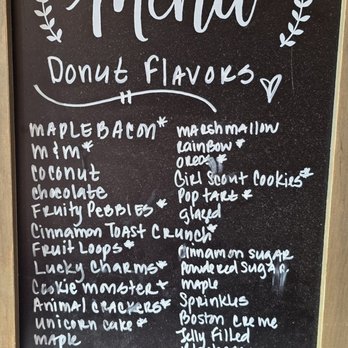 Menu
Donut Flavors
Maple Bacon*
M&M*
Coconut
Chocolate
Fruity Pebbles*
Cinnamon Toast Crunch*
Fruit Loops*
Lucky Charms*
Cookie Monster*
Animal Crackers*
Unicorn Cake*
Maple
Marshmallow
Rainbow*
Oreos*
Girl Scout Cookies*
Pop tart*
glazed
Cinnamon sugar
Powdered Sugar
maple
Sprinkles
Boston Creme
Jelly Filled